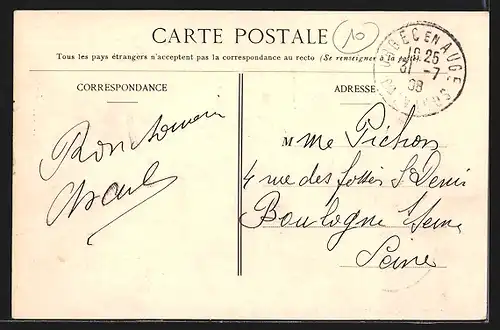 CARTE POSTALE
10
Tous les pays étrangers n'acceptent pas la correspondance au recto (Se renseigner à la
ORBEC EN AUGE
CALVADOS
25
31 -7
08
CORRESPONDANCE
ADRESSE
Bons
Charles
Mme Pichon
4 rue des fossés St Denis
Boulogne s/Seine
Seine